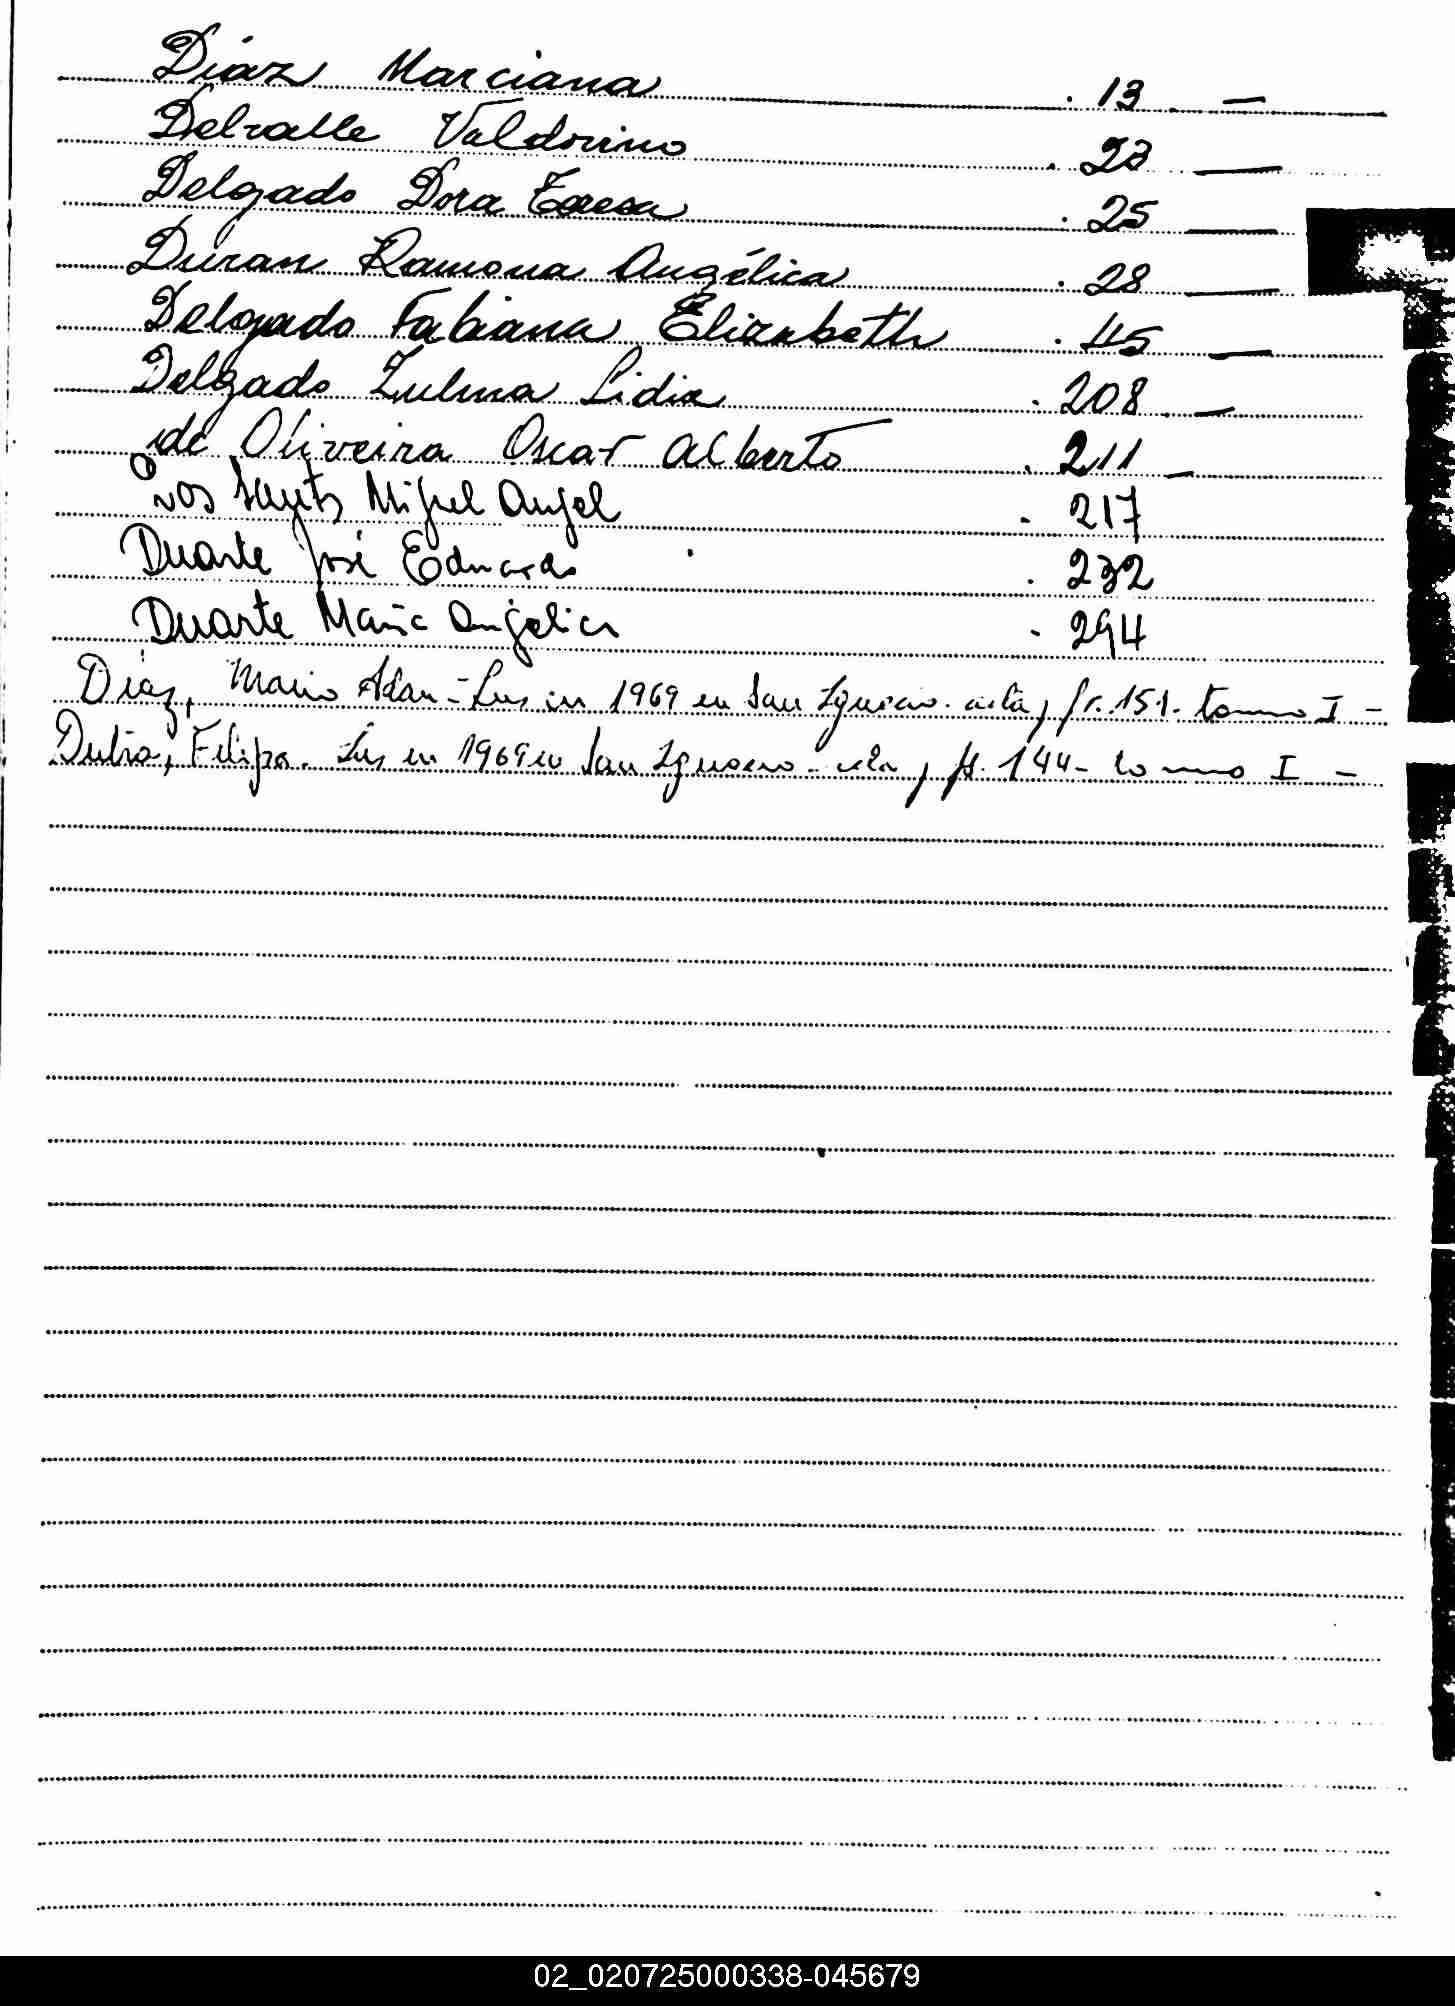 Diaz Marciana . 13. —
Delvalle Valdovino . 23 —
Delgado Dora Teresa . 25 —
Duran Ramona Angélica . 28 —
Delgado Fabiana Elizabeth . 45 —
Delgado Zulma Lidia . 208. —
de Oliveira Oscar Alberto . 211 —
Dos Santos Miguel Angel . 217
Duarte José Eduardo . 232
Duarte Maria Angelica . 294
Diaz, Mario Adan - Ins in 1969 en San Ignacio. acta, fs. 151. tomo I -
Dutra, Filipa. Ins en 1969 en San Ignacio - acta, fs. 144 - tomo I -
02_020725000338-045679